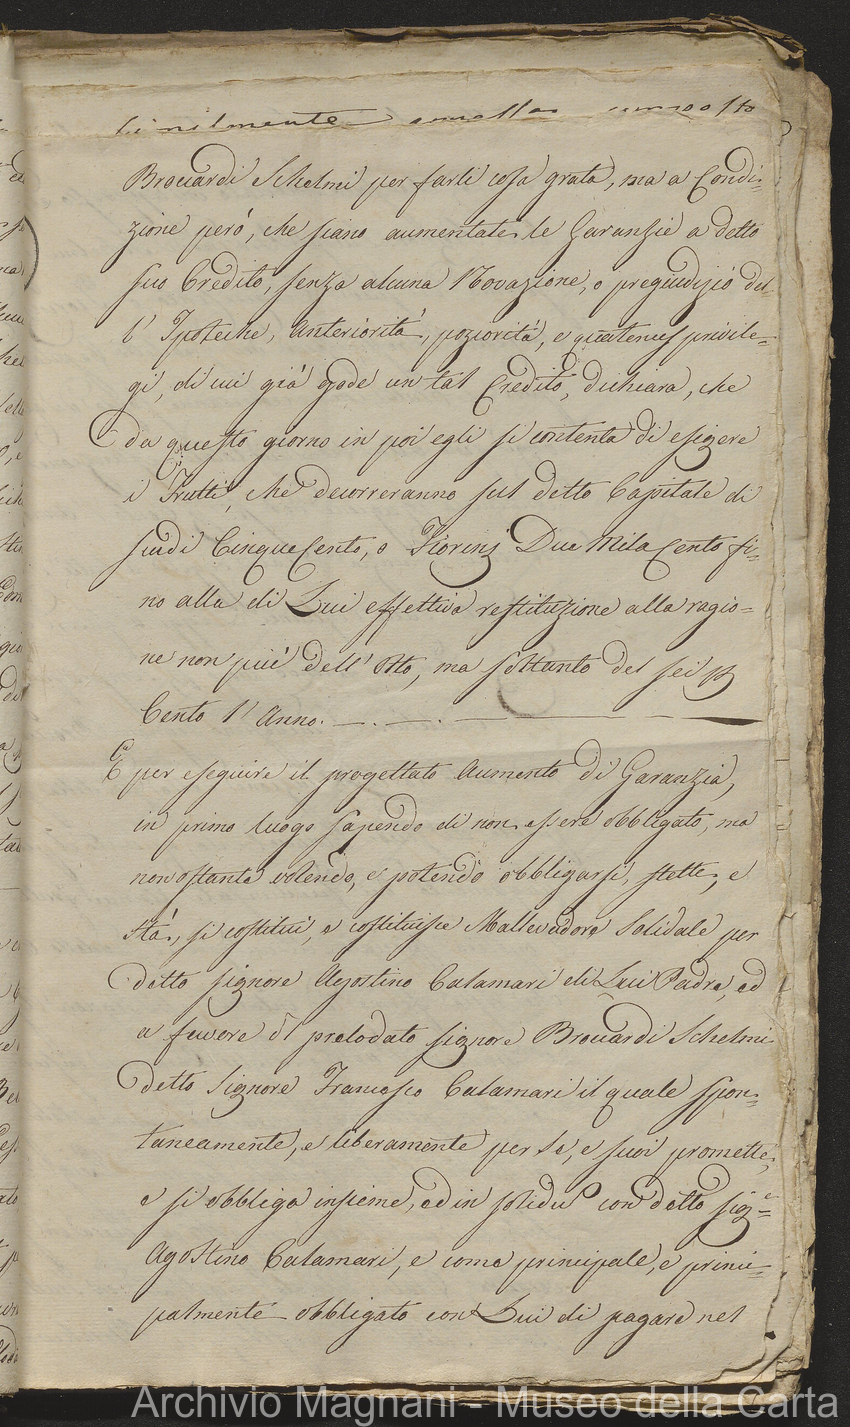 Brouardi Schelmi per farli cosa grata, ma a Condi=
zione però, che siano aumentate le Garanzie a detto
suo Credito, senza alcuna Novazione, o pregiudizio del=
l'Ipoteche, anteriorità, poziorità, e quatenus privile=
gi, di cui già gode un tal Credito, dichiara, che
da questo giorno in poi egli si contenta di esigere
i Frutti, che decorreranno sul detto Capitale di
scudi Cinquecento, o Fiorini Due Mila Cento fi=
no alla di Lui effettiva restituzione alla ragio=
ne non più dell'Otto, ma soltanto del sei p
Cento l'Anno.
E per eseguire il progettato Aumento di Garanzia,
in primo luogo sapendo di non essere obbligato, ma
nonostante volendo, e potendo obbligarsi, stette, e
stà, si costituì, e costituisce Mallevadore Solidale per
detto signore Agostino Calamari di Lui Padre, ed
a favore dl prelodato signore Brouardi Schelmi
detto Signore Francesco Calamari il quale spon=
taneamente, e liberamente per se, e suoi promette,
e si obbliga insieme, ed in solidum con detto sigr=
Agostino Calamari, e come principale, e princi=
palmente obbligato con Lui di pagare nel
Archivio Magnani - Museo della Carta